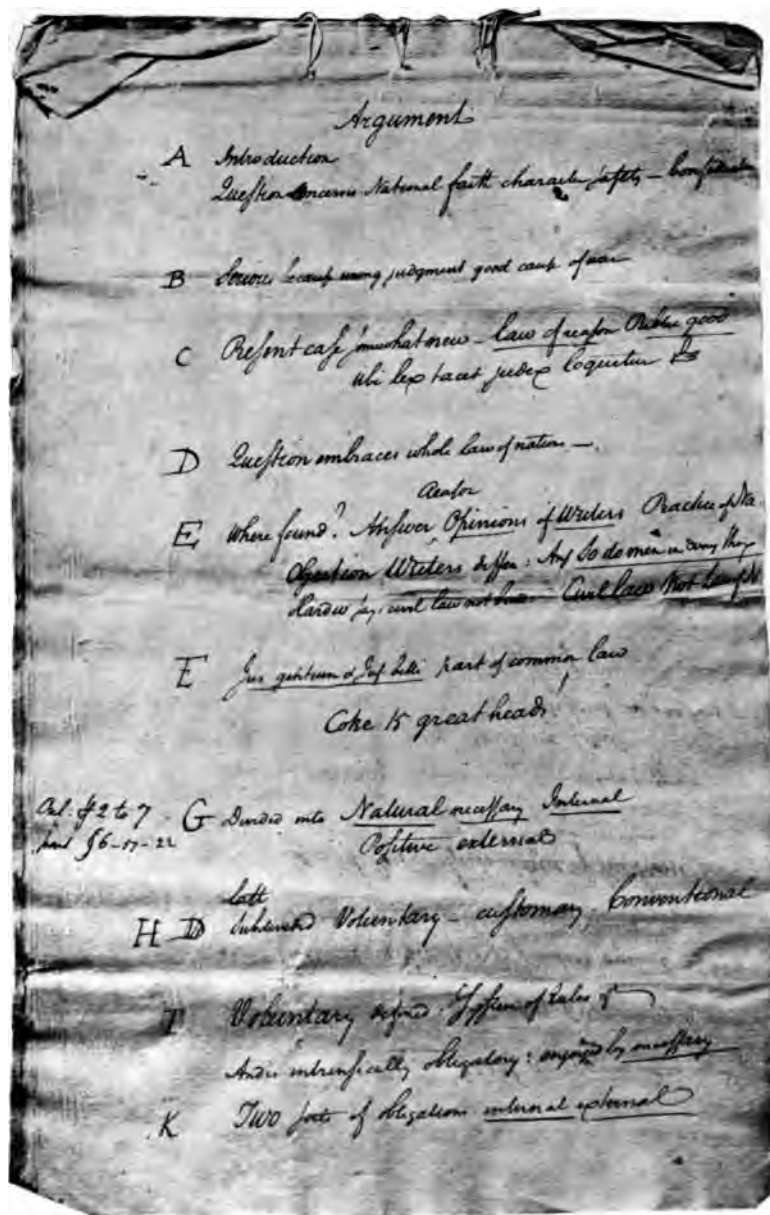 Argument
A Introduction
Question concerns National faith character safety — Confederation
B Serious because wrong judgment good cause of war
C Present case somewhat new — law of reason Public good
ubi lex tacet judex loquitur
D Question embraces whole law of nations —
Reason
E Where found? Answer Opinions of Writers Practice of Na
Objection Writers differ: Ans So do men in every thing
civil law not Civil law Not
E Jus gentium & Jus belli part of common law
Coke 15 great heads
§2 to 7 G Divided into Natural necessary Internal
§6-17-22 Positive external
latt
H D Subdivided Voluntary — customary, Conventional
I Voluntary defined System of rules
And is intrinsically obligatory: enjoined by necessary
K Two sorts of obligations internal external